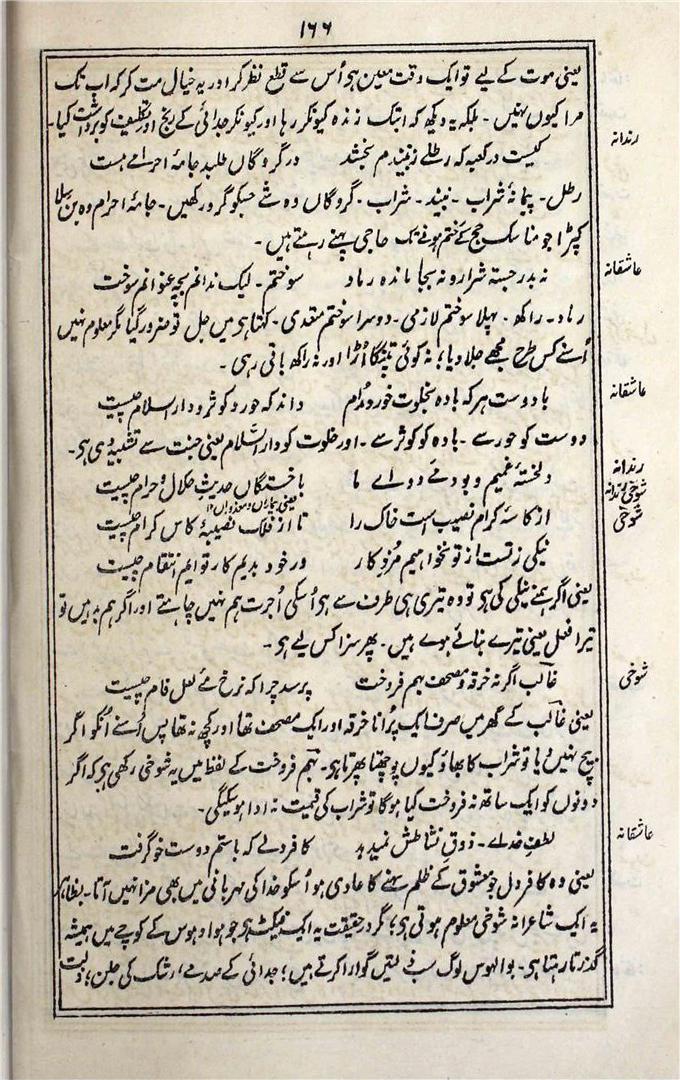 ۱۶۶
یعنی موت کے لیے تو ایک وقت معین ہی اُس سے قطع نظر کر اور یہ خیال مت کر کہ اب تک
مرا کیوں نہیں ۔ بلکہ یہ دیکھ کہ ابتک زندہ کیونکر رہا اور کیونکر جدائی کے رنج اور تکلیف کو برداشت کیا۔
رندانہ
کیست در کعبہ کہ رطلے ز نبیندم بخشد در گروگاں طلبد جامۂ احرامے ہست
رطل۔ پیمانۂ شراب ۔ نبیند ۔ شراب ۔ گروگاں وہ شے جسکو گرو رکھیں ۔ جامۂ احرام وہ بن سلا
کپڑا جو مناسک حج کے ختم ہونے تک حاجی پہنے رہتے ہیں ۔
عاشقانہ
نہ بدر جستہ شرار و نہ بجا ماندہ رماد سوختم ۔ لیک ندانم بچہ عنوانم سوخت
رماد۔ راکھ ۔ پہلا سوختم لازمی ۔ دوسرا سوختم متعدی ۔ کہتا ہی میں جل تو ضرور گیا مگر معلوم نہیں
اُسنے کس طرح مجھے جلا دیا؛ نہ کوئی پتنگا اُڑا اور نہ راکھ باقی رہی ۔
عاشقانہ
با دوست ہر کہ بادہ بخلوت خورد مدام داند کہ حور و کوثر و دارالسلام چیست
دوست کو حور سے ۔ بادہ کو کوثر سے ۔ اور خلوت کو دارالسّلام یعنی جنت سے تشبیہ دی ہی۔
رندانہ
دلخستۂ غمیم و بود مے دواے ما با خستگاں حدیث حلال و حرام چیست
شوخی رندانہ
یعنی بیماراں و معذوراں ۱۲
شوخی
از کاسۂ کرام نصیب است خاک را تا از فلک نصیبۂ کاس کرام چیست
نیکی ز تست از تو نخواہیم مزد کار ور خود بدیم کار تو ایم انتقام چیست
یعنی اگر ہمنے نیکی کی ہی تو وہ تیری ہی طرف سے ہی اُسکی اُجرت ہم نہیں چاہتے اور اگر ہم بد ہیں تو
تیرا فعل یعنی تیرے بنائے ہوے ہیں ۔ پھر سزا کس لیے ہی ۔
شوخی
غالب اگر نہ خرقہ و مصحف بہم فروخت پرسد چرا کہ نرخ مے لعل فام چیست
یعنی غالب کے گھر میں صرف ایک پُرانا خرقہ اور ایک مصحف تھا اور کچھ نہ تھا پس اُسنے اُنکو اگر
بیچ نہیں دیا تو شراب کا بھاؤ کیوں پوچھتا پھرتا ہی۔ بہم فروخت کے لفظ میں یہ شوخی رکھی ہی کہ اگر
دونوں کو ایک ساتھ نہ فروخت کیا ہوگا تو شراب کی قیمت نہ ادا ہو سکیگی۔
عاشقانہ
لطف خداے ۔ ذوق نشاطش نمیدہد کافر دلے کہ با ستم دوست خو گرفت
یعنی وہ کافر دل جو معشوق کے ظلم سہنے کا عادی ہو اُسکو خدا کی مہربانی میں بھی مزا نہیں آتا۔ بظاہر
یہ ایک شاعرانہ شوخی معلوم ہوتی ہی؛ مگر درحقیقت یہ ایک فیکٹ ہی جو ہوا و ہوس کے کوچے میں ہمیشہ
گذرتا رہتا ہی۔ بوالہوس لوگ سب ذلتیں گوارا کرتے ہیں؛ جدائی کے صدمے، رشک کی جلن؛ ذلت